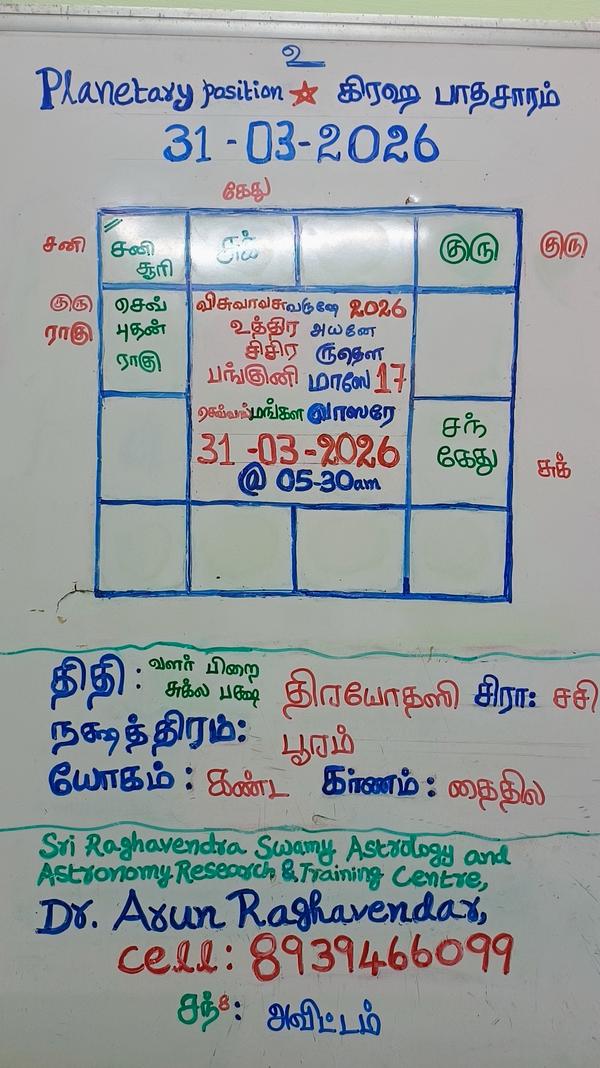 உ
Planetary position ☆ கிரஹ பாதசாரம்
31-03-2026
கேது
சனி
சனி
சூரி
சுக்
குரு
குரு
குரு
ராகு
செவ்
புதன்
ராகு
விசுவாவசுவருஷே 2026
உத்திர அயனே
சிசிர ருதௌ
பங்குனி மாஸே 17
செவ்வாய் மங்கள வாஸரே
31-03-2026
@ 05-30am
சந்
கேது
சுக்
திதி : வளர் பிறை
சுக்ல பக்ஷ
திரயோதஸி சிரா: சசி
நக்ஷத்திரம்: பூரம்
யோகம் : கண்ட கர்ணம் : தைதில
Sri Raghavendra Swamy Astrology and
Astronomy Research & Training Centre,
Dr. Arun Raghavendar,
cell: 8939466099
சந் 8 : அவிட்டம்